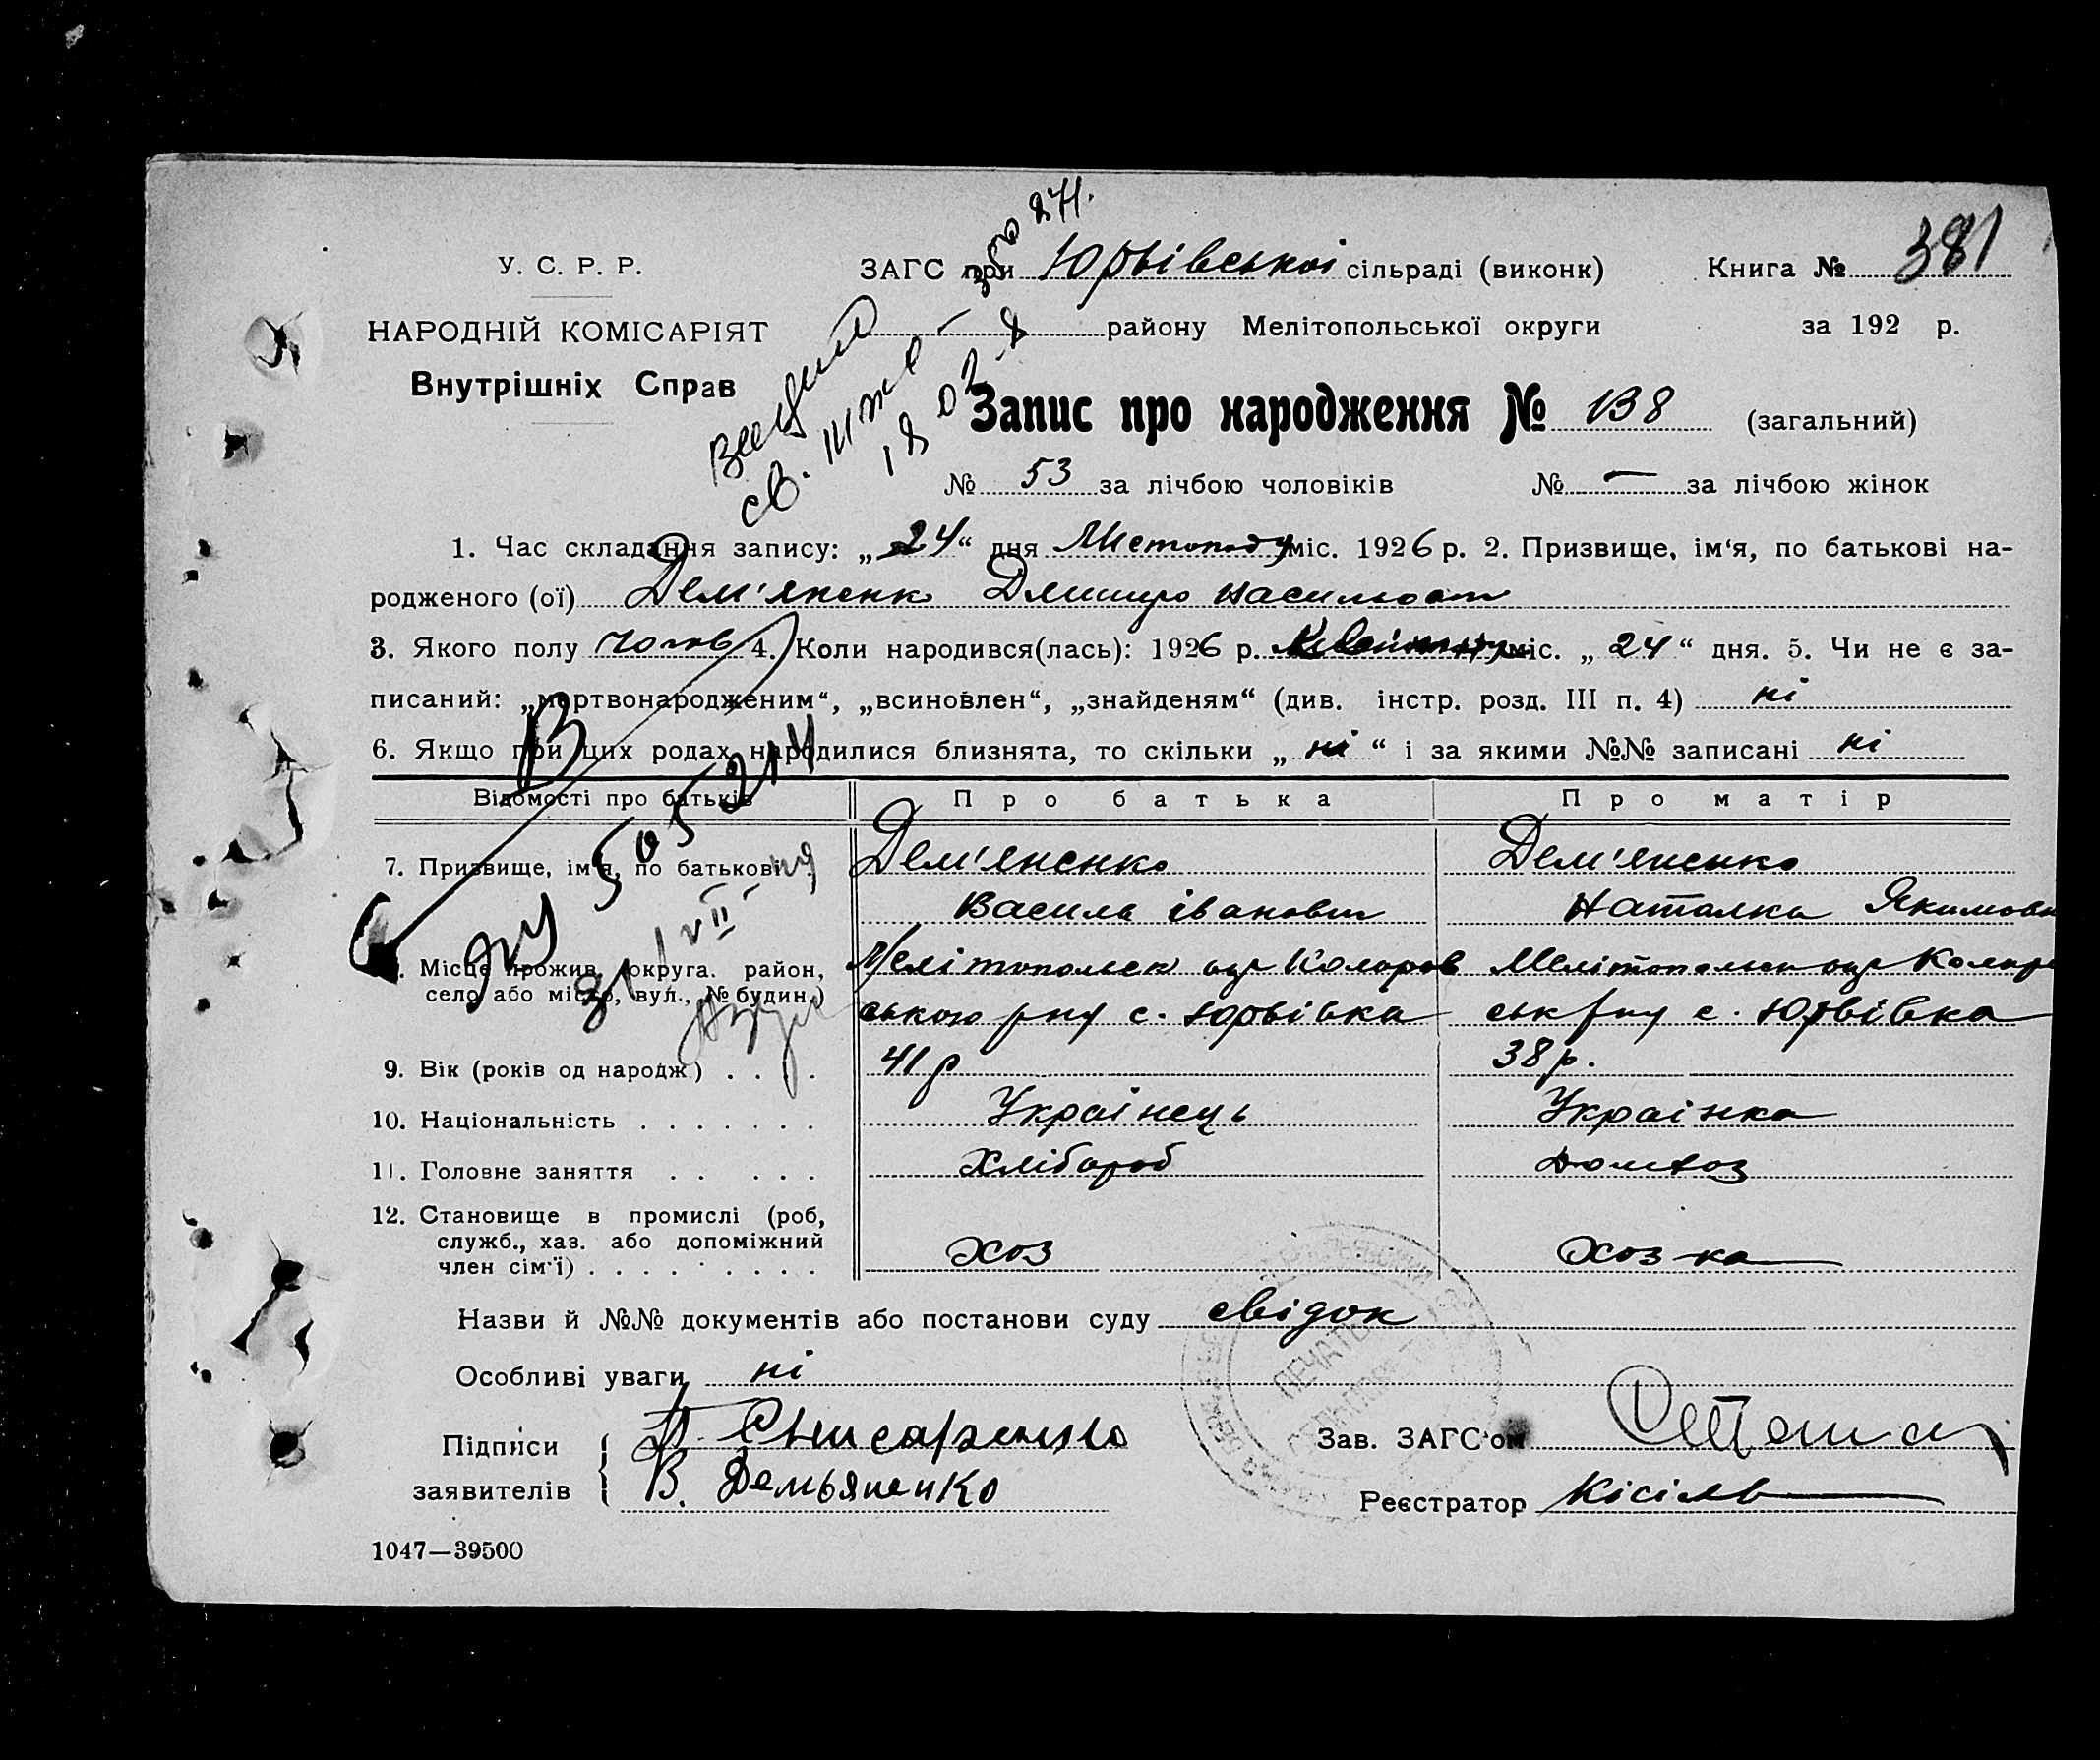 У. С. Р. Р.
НАРОДНІЙ КОМІСАРІЯТ
Внутрішніх Справ
ЗАГС при Юрьівської сільраді (виконк)
району Мелітопольської округи
Книга № 381
за 192 р.
Запис про народження № 138 (загальний)
№ 53 за лічбою чоловіків № — за лічбою жінок
1. Час складання запису: „24“ дня Листопаду міс. 1926 р. 2. Призвище, ім‘я, по батькові на-
родженого (ої) Дем'яненко Дмитро Василіович
3. Якого полу чолов 4. Коли народився(лась): 1926 р. міс. „24“ дня. 5. Чи не є за-
писаний: „мертвонародженим“, „всиновлен“, „знайденям“ (див. інстр. розд. III п. 4) ні
6. Якщо при цих родах народилися близнята, то скільки „ні“ і за якими №№ записані ні
Відомості про батьків Про батька Про матір
7. Призвище, ім‘я, по батькові Дем'яненко Дем'яненко
Василь іванович Наталка Якимовн
Місце прожив. округа. район, Мелітопольск окр Коларов Мелітопольск окр Колар
село або місто, вул., № будин.) ською рну с. Юрьівка ськ рну с. Юрьівка
9. Вік (років од народж.) . . . . 41 р 38 р.
10. Національність . . . . . . . Украінець Украінка
11. Головне заняття . . . . . Хлібороб домхоз
12. Становище в промислі (роб,
служб., хаз. або допоміжний
член сім‘ї) . . . . . . . . . хоз хоз-ка
Назви й №№ документів або постанови суду свідок
Особливі уваги ні
Підписи
заявителів
В. Демьяненко
Зав. ЗАГС‘ом
Реєстратор Кісіль
1047—39500